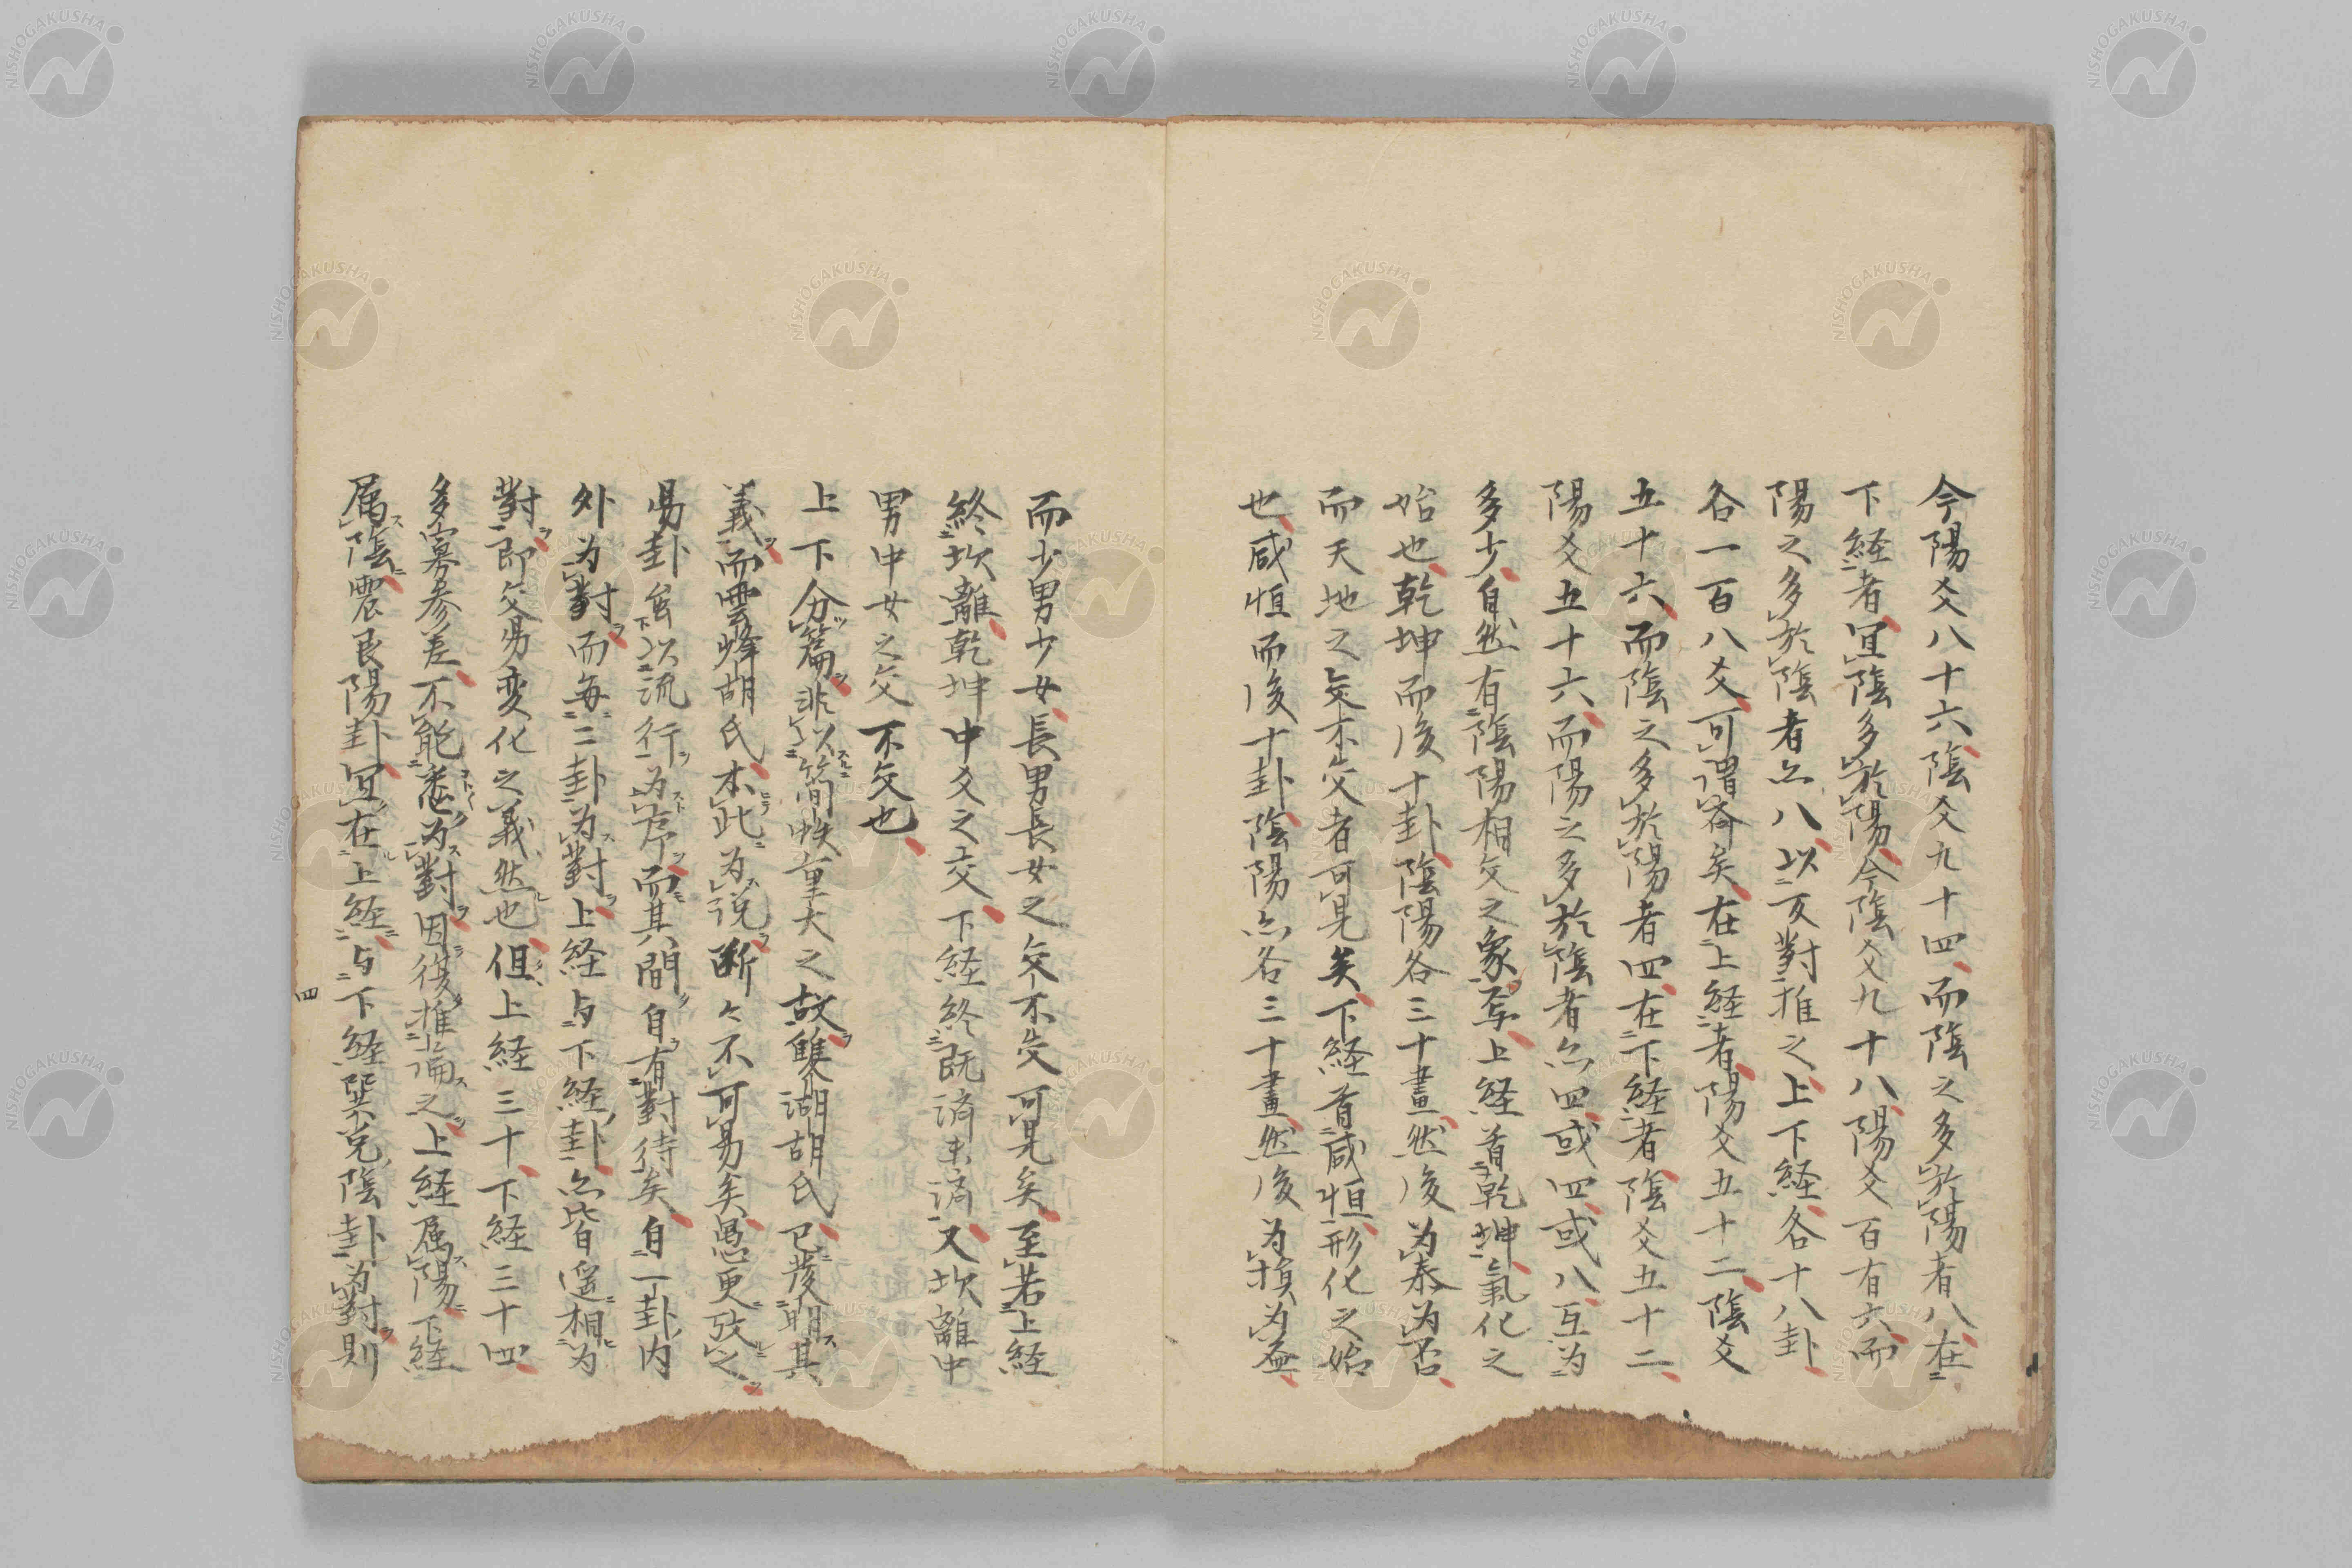 今陽爻八十六陰爻九十四而陰之多於陽者八在
下経者宜陰多於陽今陰爻九十八陽爻百有六而
陽之多於陰者亦八以反對推之上下経各十八卦
各一百八爻可謂齊矣在上経者陽爻五十二陰爻
五十六而陰之多於陽者四在下経者陰爻五十二
陽爻五十六而陽之多於陰者亦四或四或八互為
多少自然有陰陽相交之象焉上経首乾坤氣化之
始也乾坤而後十卦陰陽各三十畫然後為泰為否
而天地之交不交者可見矣下経首咸恒形化之始
也咸恒而後十卦陰陽亦各三十畫然後為損為益
而少男少女長男長女之交不交可見矣至若上経
終坎離乾坤中爻之交下経終既済未済又坎離中
男中女之交不交也
上下分篇非以簡帙重大之故雙湖胡氏已發明其
義而雲峰胡氏本此為説断々不可易矣愚更攷之
易卦虽以流行為序而其間自有對待矣自一卦内
外為對而每二卦為對上経与下経卦亦皆遥相為
對即交易変化之義然也但上経三十下経三十四
多寡参差不能悉為對因復推論之上経属陽下経
属陰震艮陽卦宜在上経与下経巽兌陰卦為對則
四
NISHOGAKUSHA